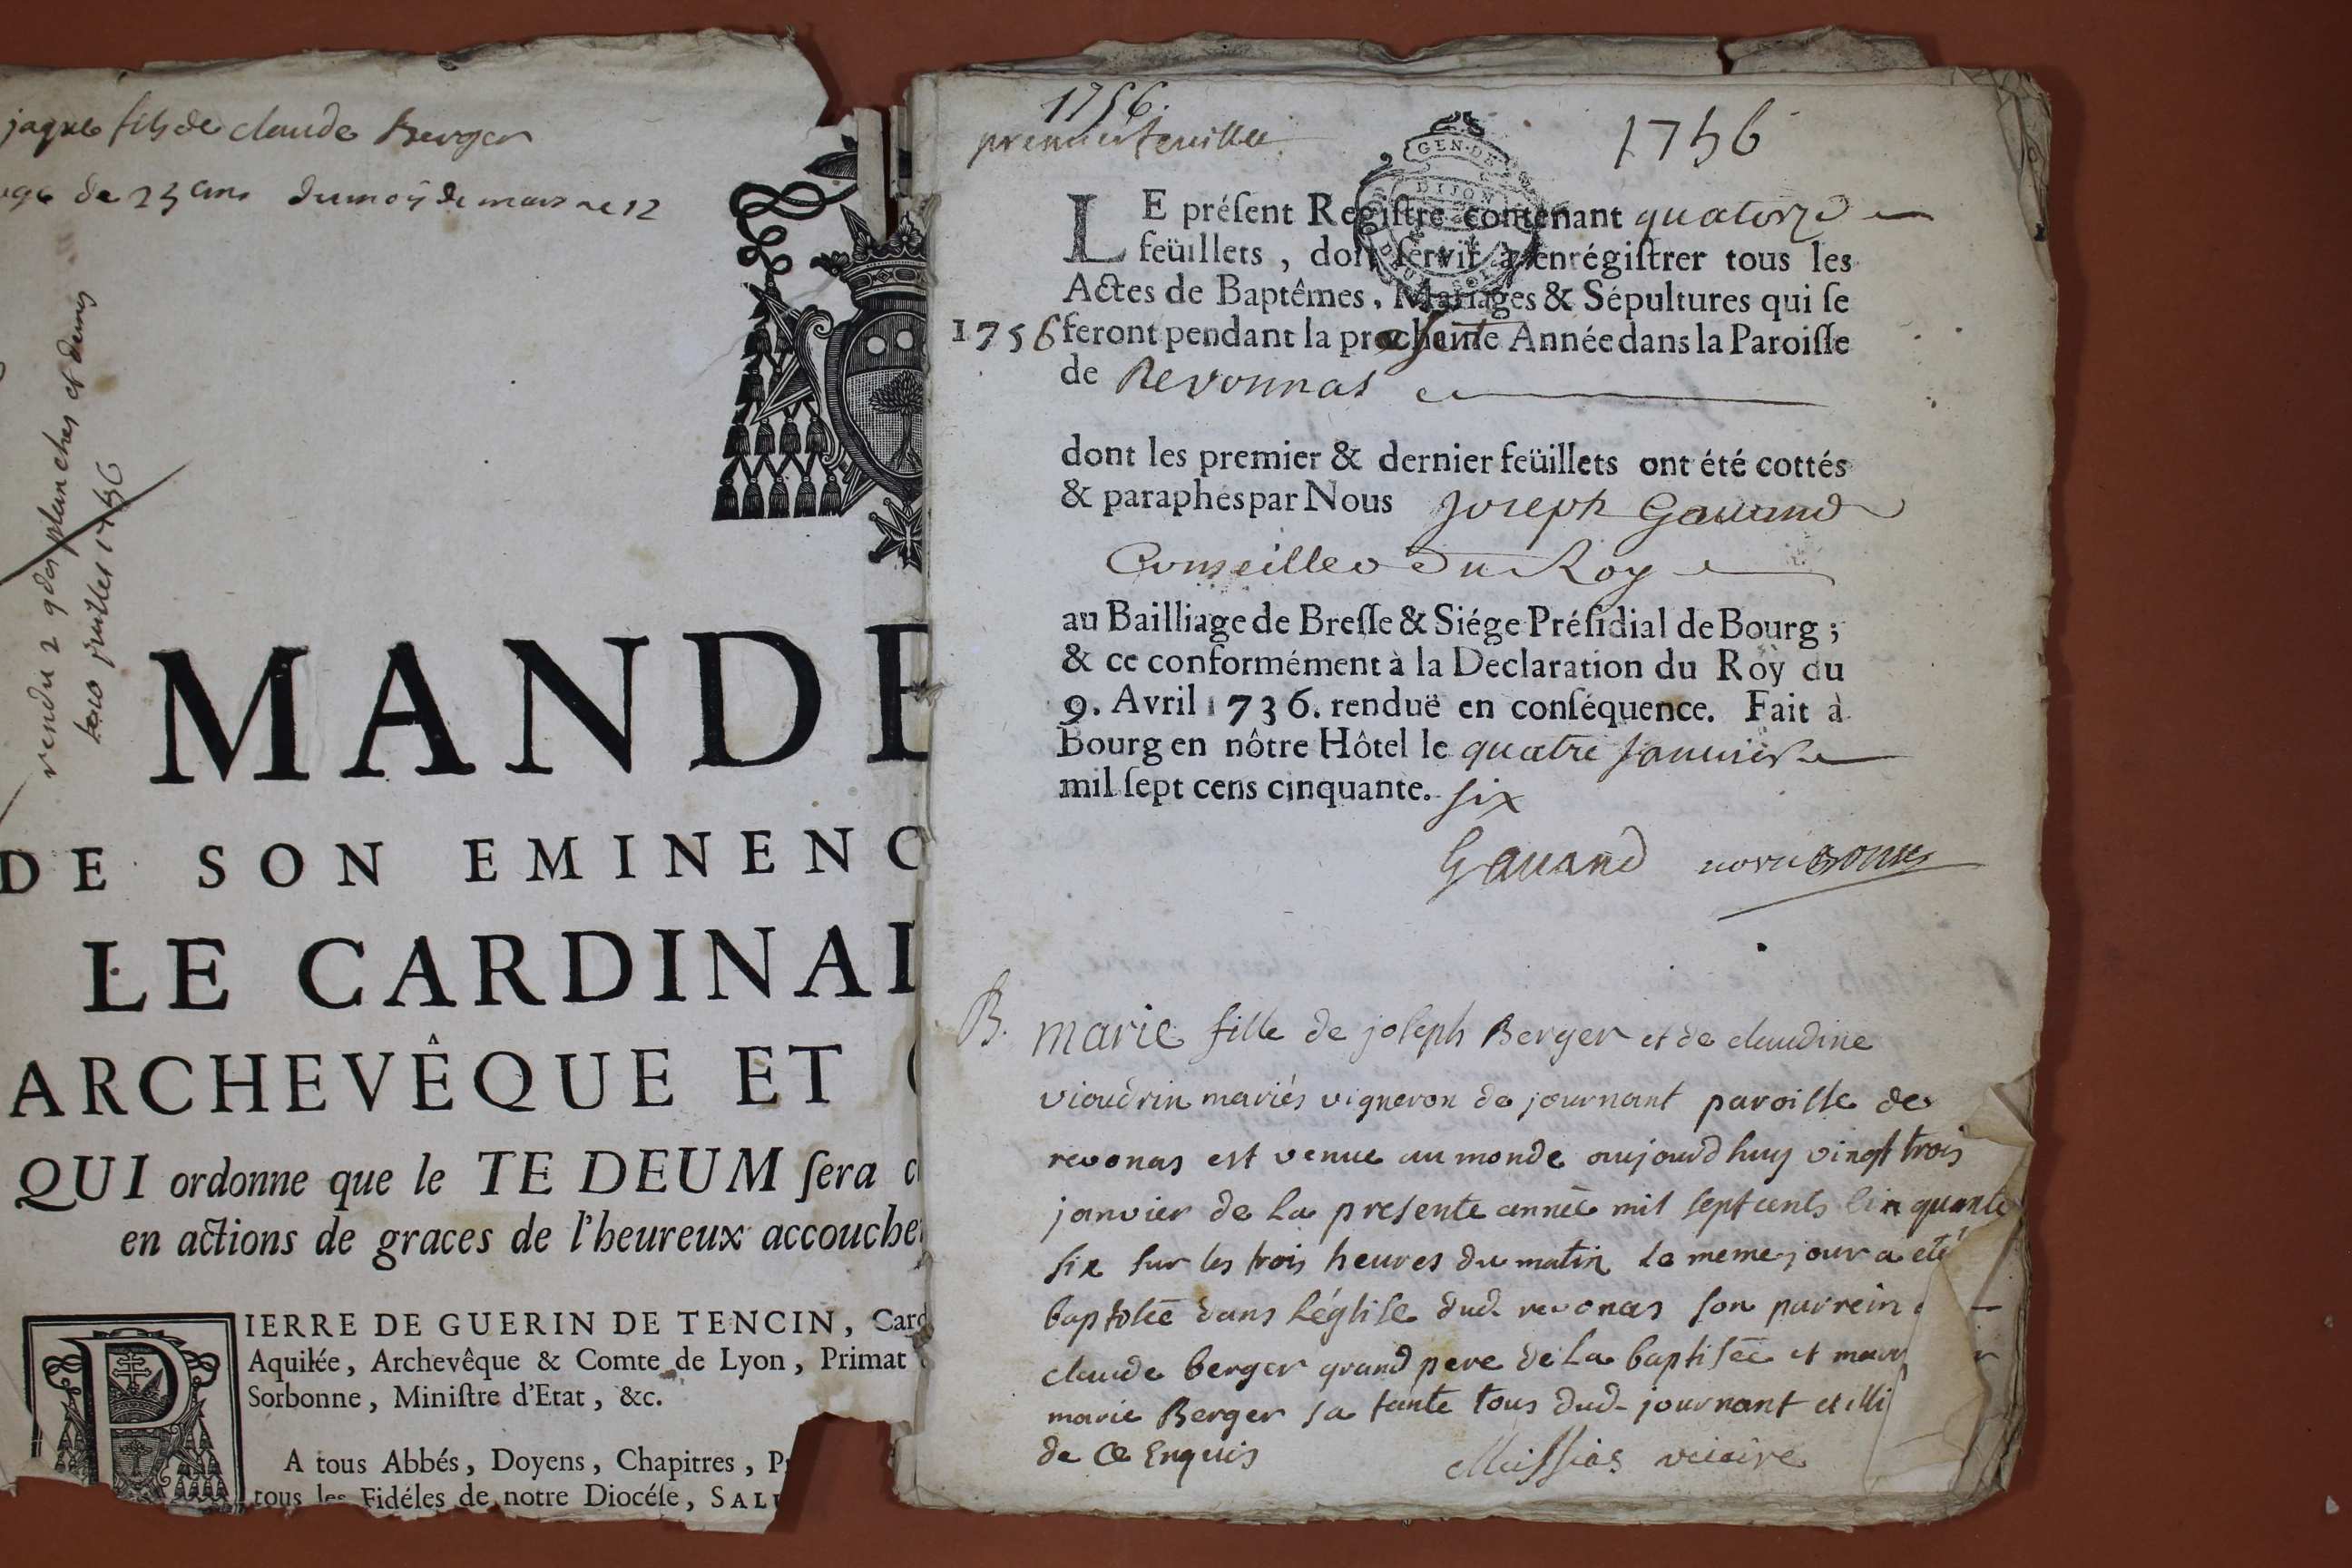 jaque fils de claude Berger
age de 25 ans du moy de mars ne 12
vendu 2 planches et demy
1756
MANDE
DE SON EMINENC
LE CARDINAL
ARCHEVÊQUE ET C
QUI ordonne que le TE DEUM ſera c
en actions de graces de l'heureux accouche
PIERRE DE GUERIN DE TENCIN, Card
Aquilée, Archevêque & Comte de Lyon, Primat
Sorbonne, Miniſtre d'Etat, &c.
A tous Abbés, Doyens, Chapitres, P
tous les Fidéles de notre Diocéſe, SALU
1756.
premier feuillet
1756
GEN. DE
DIJON
LE préſent Regiſtre contenant quatorze
feüillets, doit ſervir à enrégiſtrer tous les
Actes de Baptêmes, Mariages & Sépultures qui ſe
1756 feront pendant la preſente Année dans la Paroiſſe
de Revonnas
dont les premier & dernier feüillets ont été cottés
& paraphés par Nous Joseph Gauand
Conseiller du Roy
au Bailliage de Breſſe & Siége Préſidial de Bourg ;
& ce conformément à la Declaration du Roy du
9. Avril 1736. renduë en conſéquence. Fait à
Bourg en nôtre Hôtel le quatre Januier
mil ſept cens cinquante. six
Gauand
B. marie fille de joseph Berger et de claudine
vioudrin mariés vigneron de journant paroisse de
revonas est venue au monde aujourdhuy vingt trois
janvier de la presente année mil sept cents cinquante
six sur les trois heures du matin le meme jour a eté
baptisée dans l'église dud. revonas son parrein
claude berger grand pere de la baptisée et marr
marie Berger sa tante tous dud. journant et illi
de ce Enquis vicaire